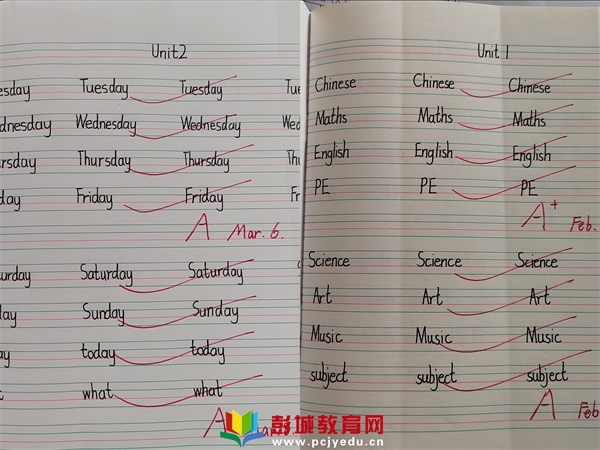 Unit2
esday Tuesday Tuesday Tu
dnesday Wednesday Wednesday We
rsday Thursday Thursday Th
day Friday Friday Fr
A Mar. 6.
urday Saturday Saturday
day Sunday Sunday
ay today today
t what what
A
Unit 1
Chinese Chinese Chinese
Maths Maths Maths
English English English
PE PE PE
A+ Feb.
Science Science Science
Art Art Art
Music Music Music
subject subject subject
A Feb
彭城教育网
www.pcjyedu.cn